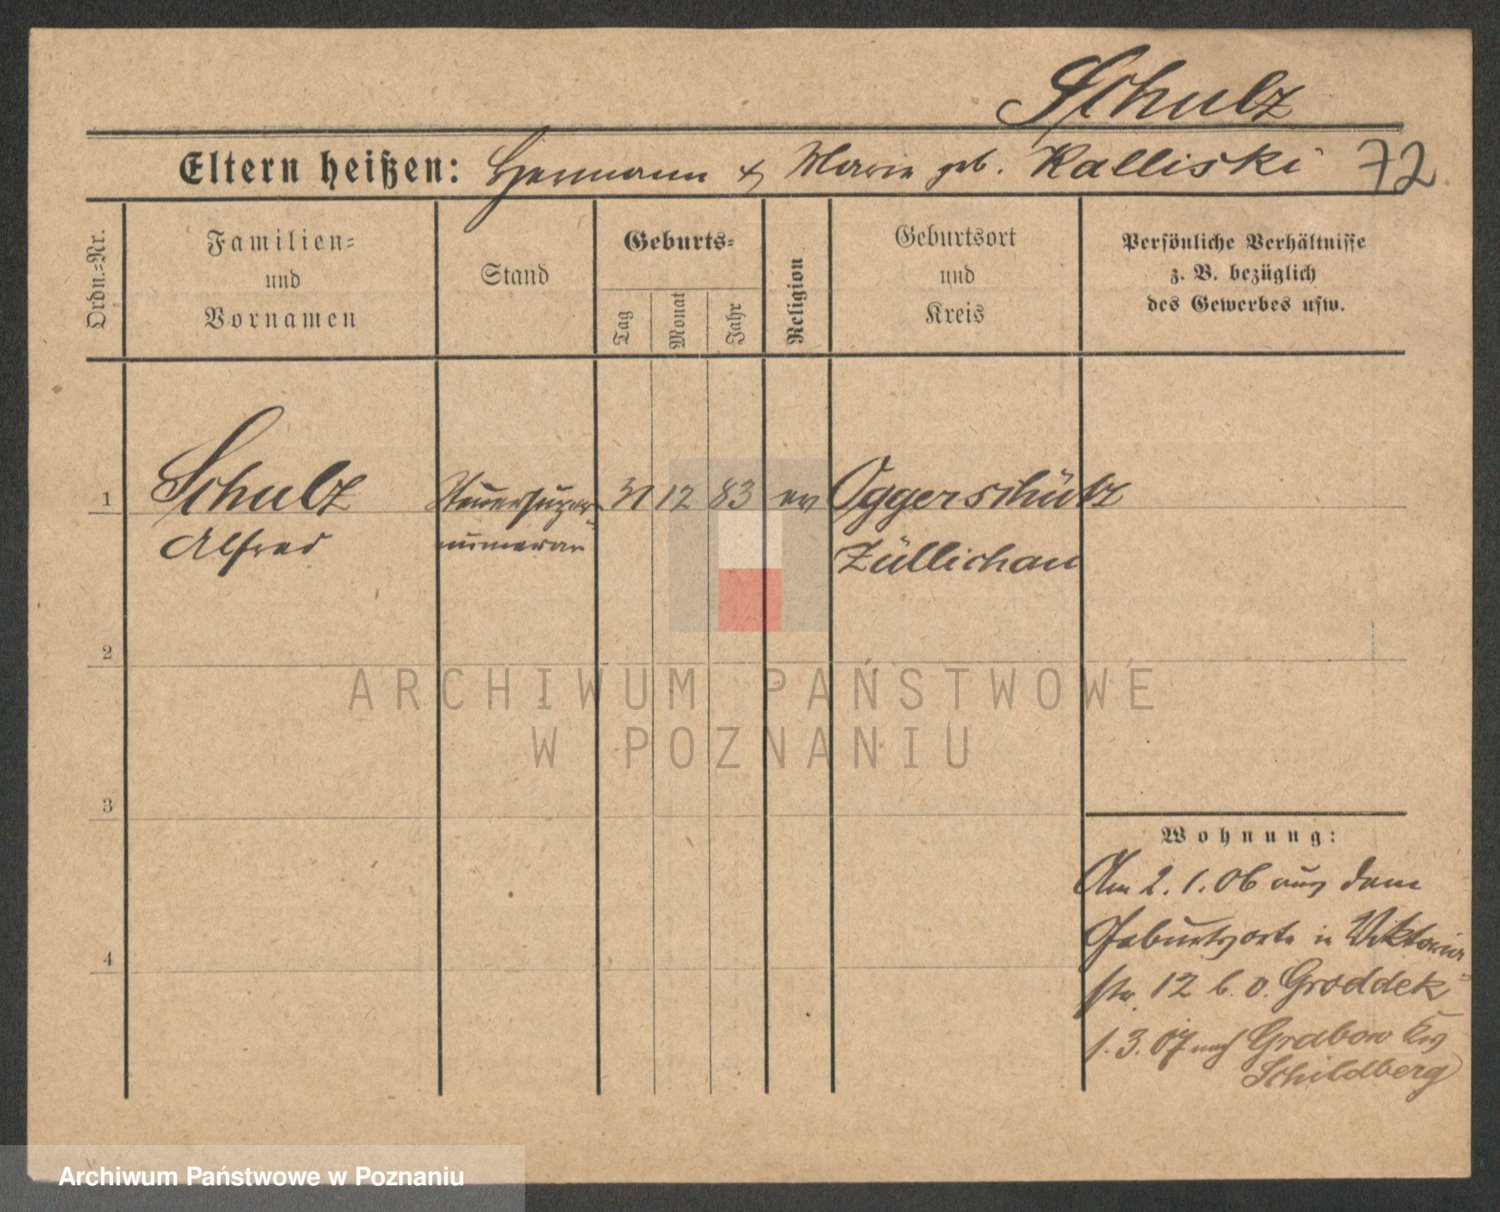 Schulz
Eltern heißen: Hermann & Marie geb. Kalliski 72
Ordn.=Nr.
Familien=
und
Vornamen
Stand
Geburts=
Tag
Monat
Jahr
Religion
Geburtsort
und
Kreis
Persönliche Verhältnisse
z. B. bezüglich
des Gewerbes usw.
1 Schulz Steuersuper= 31 12 83 ev Oggerschütz
Alfred numerar Züllichau
2
ARCHIWUM PAŃSTWOWE
W POZNANIU
3
Wohnung:
Am 2.1.06 aus dem
Geburtsorte in Viktoria=
4
str. 12 b. v. Groddek
1.3.07 nach Grabow Krs
Schildberg
Archiwum Państwowe w Poznaniu